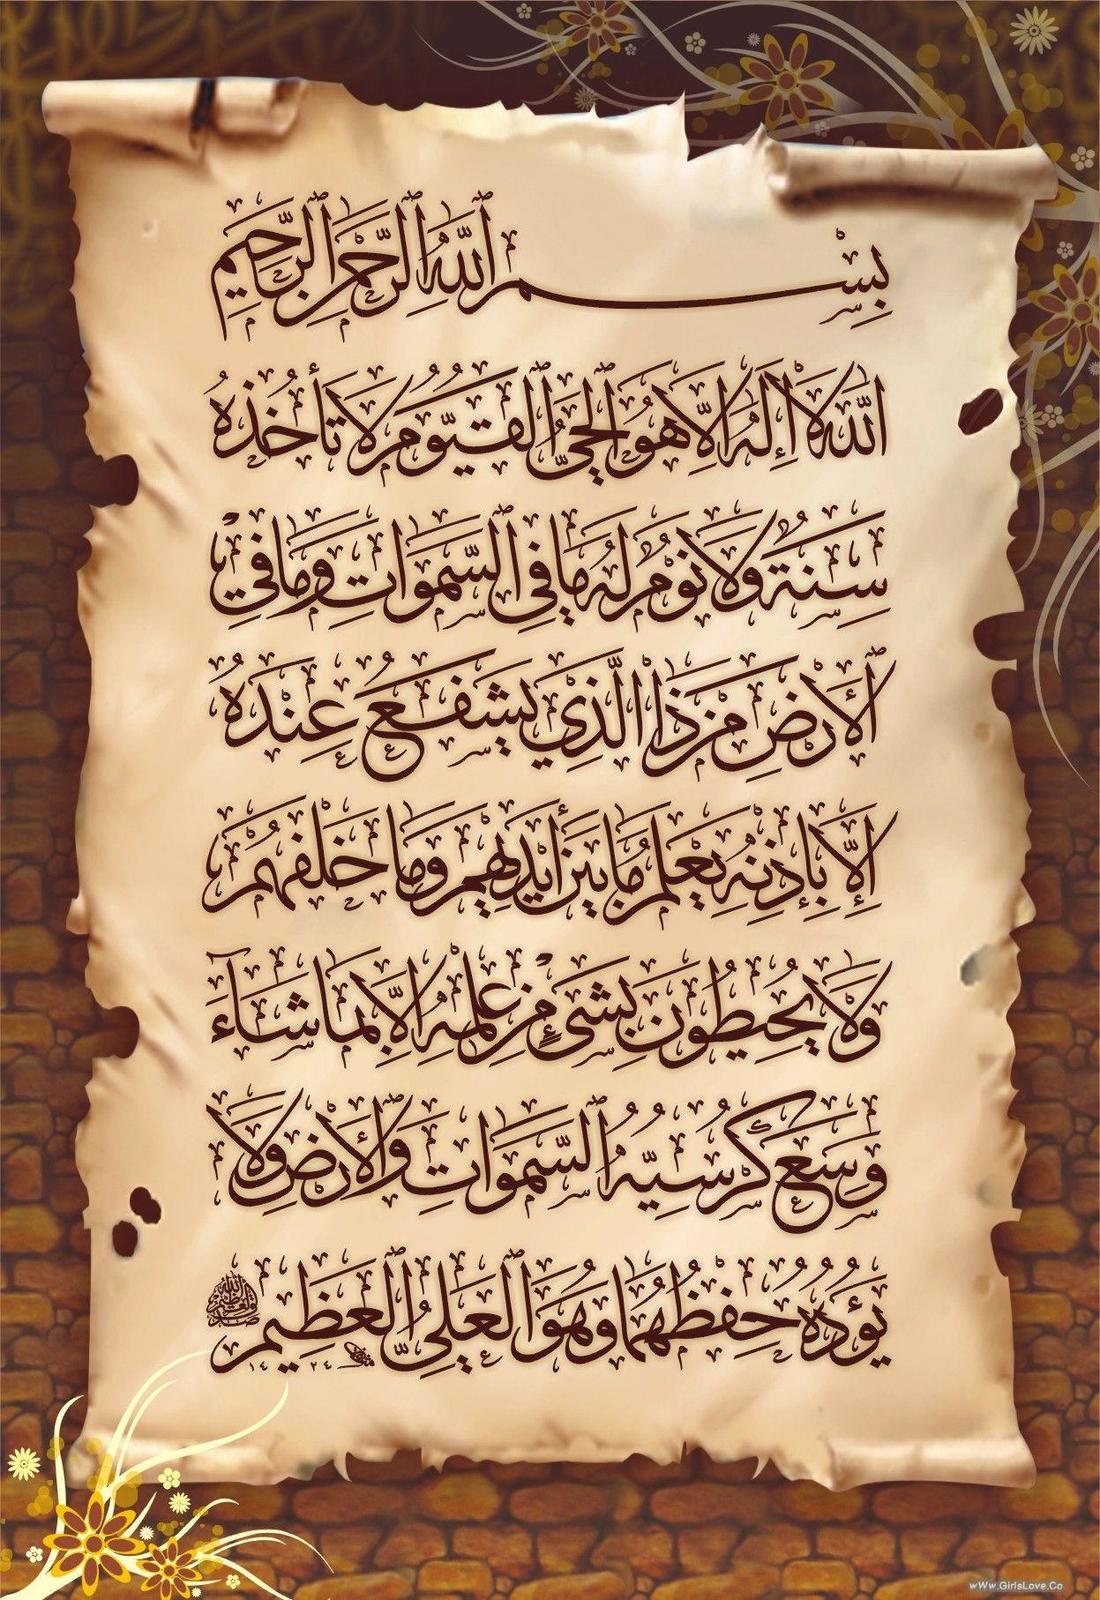 بِسْمِ ٱللَّهِ ٱلرَّحْمَٰنِ ٱلرَّحِيمِ
اللَّهُ لَا إِلَٰهَ إِلَّا هُوَ ٱلْحَيُّ ٱلْقَيُّومُ لَا تَأْخُذُهُ
سِنَةٌ وَلَا نَوْمٌ لَهُ مَا فِي ٱلسَّمَوَاتِ وَمَا فِي
ٱلْأَرْضِ مَنْ ذَا الَّذِي يَشْفَعُ عِنْدَهُ
إِلَّا بِإِذْنِهِ يَعْلَمُ مَا بَيْنَ أَيْدِيهِمْ وَمَا خَلْفَهُمْ
وَلَا يُحِيطُونَ بِشَيْءٍ مِنْ عِلْمِهِ إِلَّا بِمَا شَاءَ
وَسِعَ كُرْسِيُّهُ ٱلسَّمَوَاتِ وَٱلْأَرْضَ وَلَا
يَؤُدُهُ حِفْظُهُمَا وَهُوَ ٱلْعَلِيُّ ٱلْعَظِيمُ
١٤٢٤
wWw.GirlsLove.Co